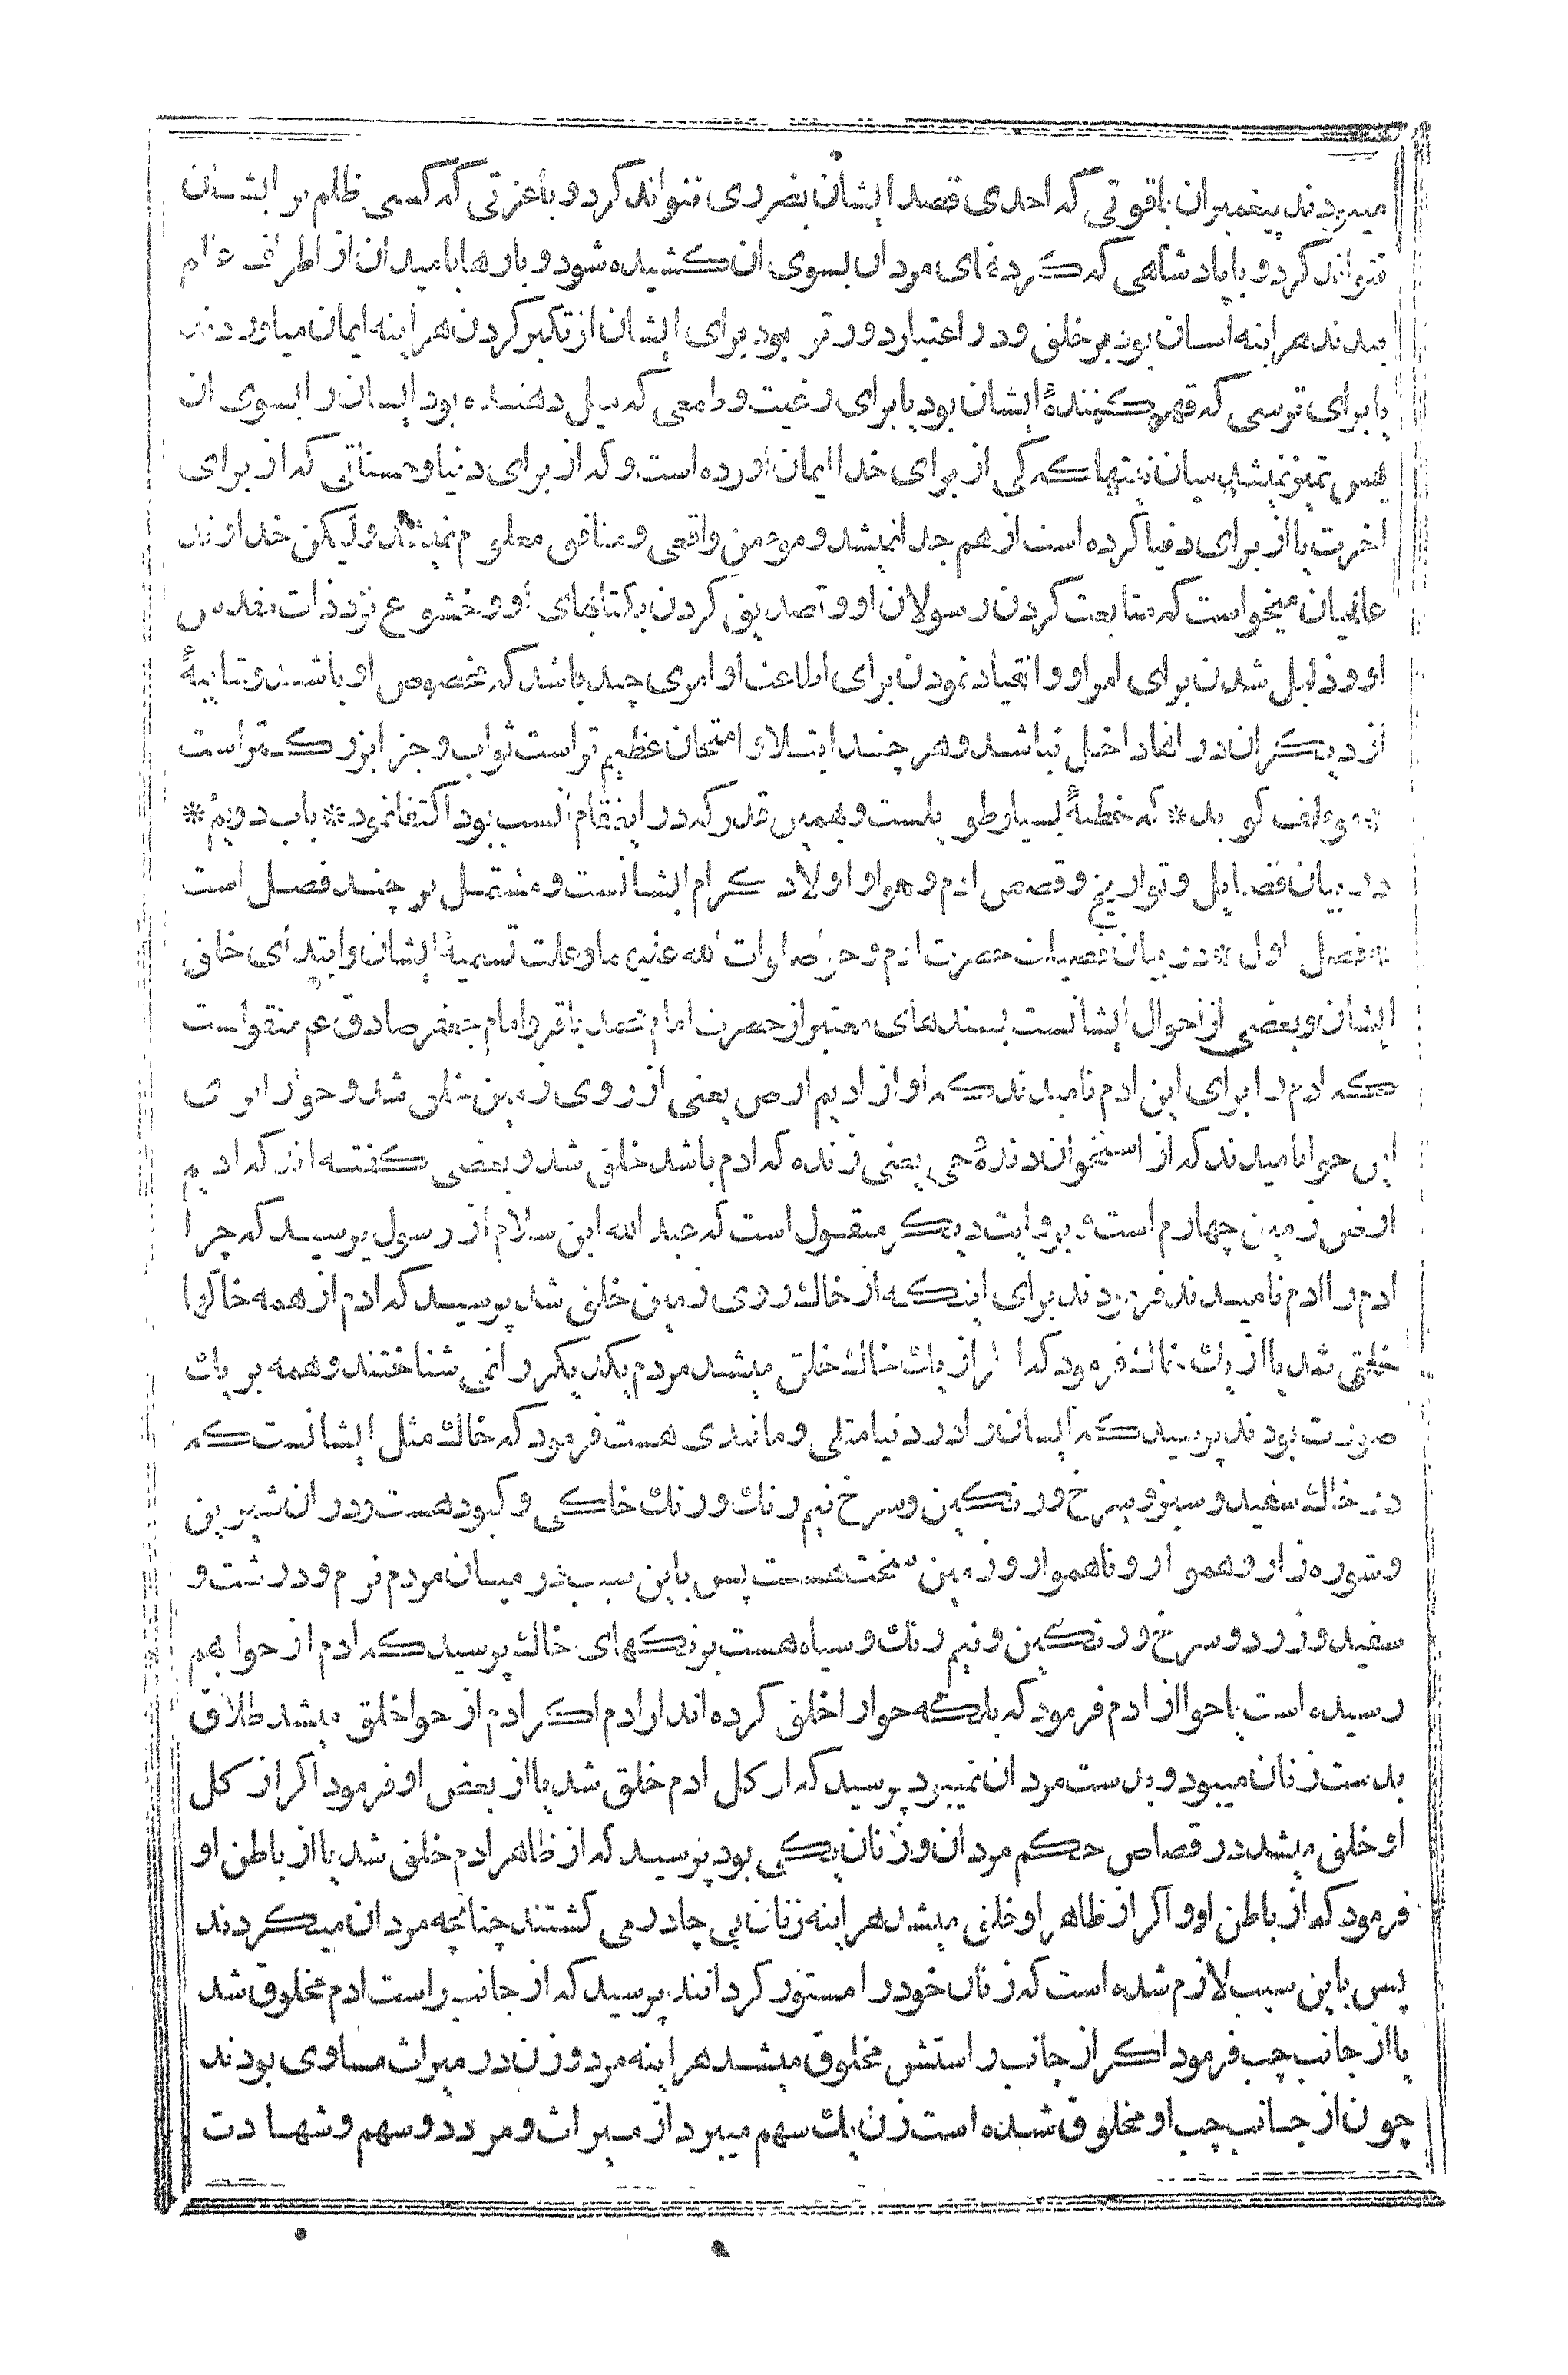 میبودند پیغمبران باقوتی که احدی قصد ایشان بضرری نتواند کرد و باعزتی که کسی ظلم بر ایشان
نتواند کرد و باپادشاهی که کردنهای مردان بسوی ان کشیده شود و بارها بامید ان از اطراف عالم
ببندند هراینه اسان بود بر خلق و در اعتبار دورتر بود برای ایشان از تکبر کردن هراینه ایمان میاوردند
یا برای ترسی که قهر کنندهٔ ایشان بود یا برای رغبت و طمعی که میل دهنده بود ایشان را بسوی ان
پس تمیز نمیشد میان نیتها که کی از برای خدا ایمان اورده است و که از برای دنیا و حسناتی که از برای
اخرت یا از برای دنیا کرده است از هم جدا نمیشد و موءمن واقعی و منافق معلوم نمیشد و لیکن خداوند
عالمیان میخواست که متابعت کردن رسولان او و تصدیق کردن بکتابهای او و خشوع نزد ذات مقدس
او و ذلیل شدن برای امر او و انقیاد نمودن برای اطاعت او امری چند باشد که مخصوص او باشند و شایبهٔ
از دیکران در انها داخل نباشد و هر چند ابتلا و امتحان عظیم تر است ثواب و جزا بزرکتر است
*موءلف کوید* که خطبهٔ بسیار طویلست و همین قدر که در اینمقام انسب بود اکتفا نمود *باب دویم*
در بیان فضایل و تواریخ و قصص ادم و حوا و اولاد کرام ایشانست و مشتمل بر چند فصل است
*فصل اول* در بیان فضیلت حضرت ادم و حوا صلوات الله علیهما و علت تسمیهٔ ایشان و ابتدای خلق
ایشان و بعضی از احوال ایشانست بسندهای معتبر از حضرت امام محمد باقر و امام جعفر صادق عم منقولست
که ادم را برای این ادم نامیدند که او از ادیم ارض یعنی از روی زمین خلق شد و حوا را برای
این حوا نامیدند که از استخوان دندهٔ حی یعنی زنده که ادم باشد خلق شد و بعضی کفته اند که ادیم
ارض زمین چهارم است و بروایت دیکر منقول است که عبد الله ابن سلام از رسول پرسید که چرا
ادم را ادم نامیدند فرمودند برای اینکه از خاک روی زمین خلق شد پرسید که ادم از همه خاکها
خلق شد یا از یک خاک فرمود که اکر از یک خاک خلق میشد مردم یکدیکر را نمی شناختند و همه بر یک
صورت بودند پرسید که ایشان را در دنیا مثلی و مانندی هست فرمود که خاک مثل ایشانست که
در خاک سفید و سبز و سرخ و رنکین و سرخ نیم رنک و رنک خاکی و کبود هست و در ان شیرین
و شوره زار و هموار و ناهموار و زمین سخت هست پس باین سبب در میان مردم نرم و درشت و
سفید و زرد و سرخ و رنکین و نیم رنک و سیاه هست برنکهای خاک پرسید که ادم از حوا بهم
رسیده است یا حوا از ادم فرمود که بلکه حوا را خلق کرده اند از ادم اکر ادم از حوا خلق میشد طلاق
بدست زنان میبود و بدست مردان نمیبود پرسید که از کل ادم خلق شد یا از بعض او فرمود اکر از کل
او خلق میشد در قصاص حکم مردان و زنان یکی بود پرسید که از ظاهر ادم خلق شد یا از باطن او
فرمود که از باطن او و اکر از ظاهر او خلق میشد هراینه زنان بی چادر می کشتند چنانچه مردان میکردند
پس باین سبب لازم شده است که زنان خود را مستور کردانند پرسید که از جانب راست ادم مخلوق شد
یا از جانب چپ فرمود اکر از جانب راستش مخلوق میشد هراینه مرد و زن در میراث مساوی بودند
چون از جانب چپ او مخلوق شده است زن یک سهم میبرد از میراث و مرد دو سهم و شهادت